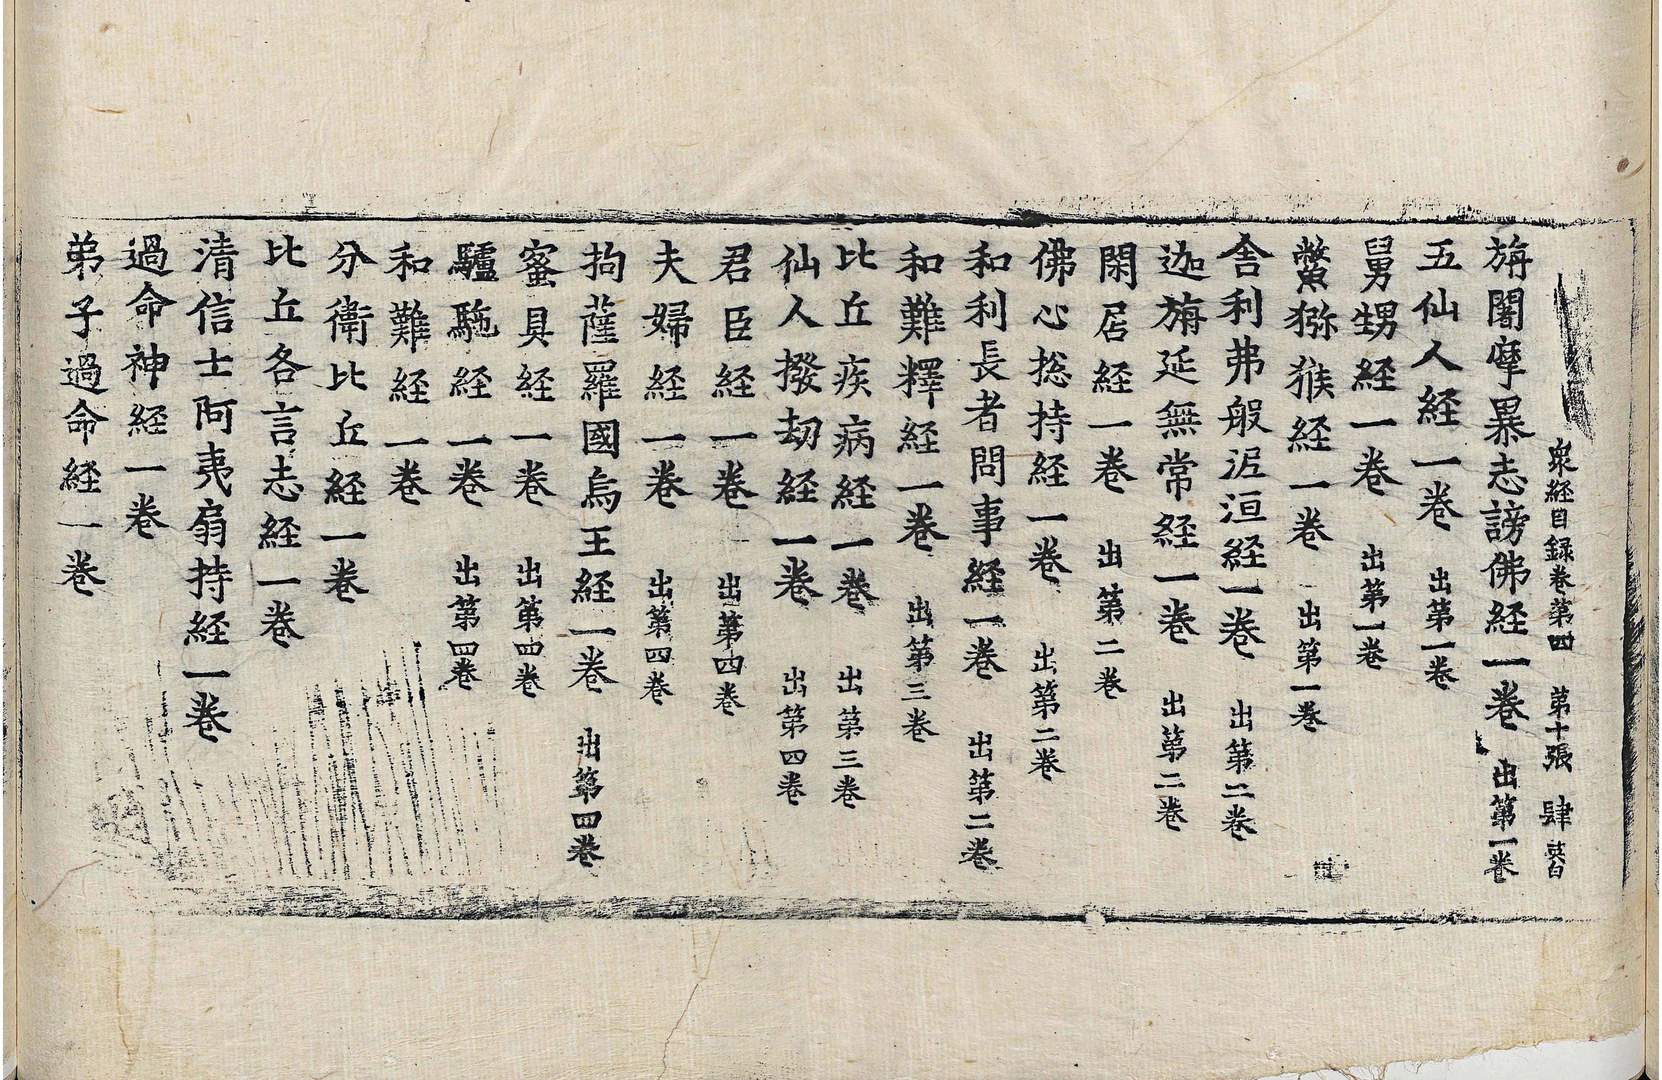 衆経目録卷第四 第十張 肆 英白
旃闍摩暴志謗佛経一卷 出第一卷
五仙人経一卷 出第一卷
舅甥経一卷 出第一卷
鱉猕猴経一卷 出第一卷
舎利弗般泥洹経一卷 出第二卷
迦旃延無常経一卷 出第二卷
閑居経一卷 出第二卷
佛心捴持経一卷 出第二卷
和利長者問事経一卷 出第二卷
和難釋経一卷 出第三卷
比丘疾病経一卷 出第三卷
仙人撥劫経一卷 出第四卷
君臣経一卷 出第四卷
夫婦経一卷 出第四卷
拘薩羅國烏王経一卷 出第四卷
蜜具経一卷 出第四卷
驢駞経一卷 出第四卷
和難経一卷
分衛比丘経一卷
比丘各言志経一卷
清信士阿夷扇持経一卷
過命神経一卷
弟子過命経一卷